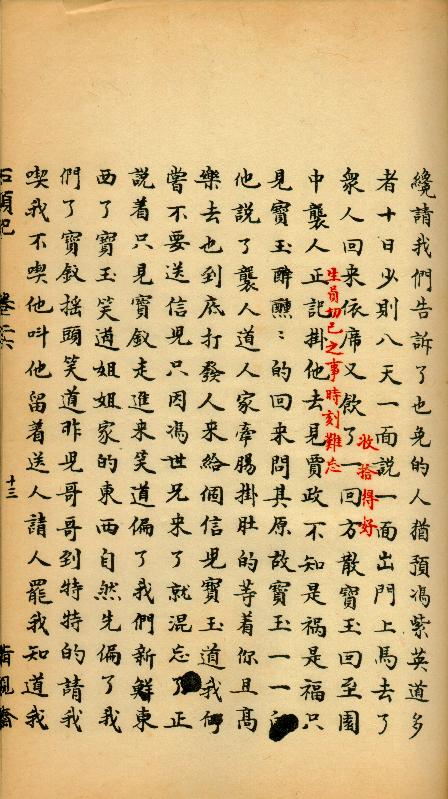 纔請我們告訴了也免的人猶預馮紫英道多
者十日少則八天一面說一面出門上馬去了
衆人回来依席又飲了一回方散寶玉回至園
收拾得好
中襲人正記掛他去見賈政不知是禍是福只
生員切己之事時刻難忘
見寶玉醉醺〻的回来問其原故寶玉一一向
他說了襲人道人家牽腸掛肚的等着你且高
樂去也到底打發人来給個信児寶玉道我何
嘗不要送信児只因馮世兄来了就混忘了正
說着只見寶釵走進来笑道偏了我們新鮮東
西了寶玉笑道姐姐家的東西自然先偏了我
們了寶釵摇頭笑道昨児哥哥到特特的請我
喫我不喫他呌他留着送人請人罷我知道我
石頭記 卷六 十三